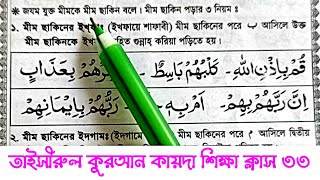 ❋ জযম যুক্ত মীমকে মীম ছাকিন বলে। মীম ছাকিন পড়ার ৩ নিয়ম ঃ
১. মীম ছাকিনের ইখফাঃ (ইখফায়ে শাফাবী) মীম ছাকিনের পরে ب আসিলে উক্ত
মীম ছাকিনকে হিত গুন্নাহ করিয়া পড়িতে হয়।
قُمْ بِإِذْنِ اللهِ - كَلْبُهُمْ بَاسِطٌ - هُمْ بِعَذَابٍ
اِنَّ رَبَّهُمْ بِهِمْ - اَمْ بِهِ - رَبُّهُمْ بِاِيْمَانِهِمْ
২. মীম ছাকিনের ইদগামঃ (ইদগামে মীম ছাকিনের পরে م আসিলে দ্বিতীয়
তাইসীরুল কুরআন কায়দা শিক্ষা ক্লাস ৩৩